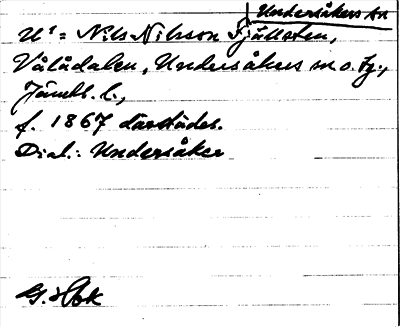 Undersåkers sn
U¹ = Nils Nilsson Fjällsten,
Vålådalen, Undersåkers sn o. tg.,
Jämtl. l.,
f. 1867 därstädes.
Dial.: Undersåker
G. Hbk